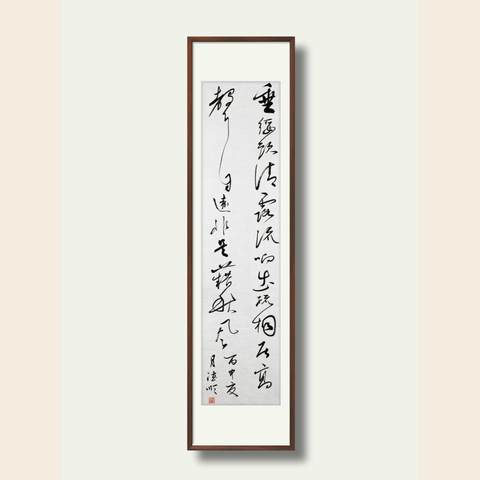 垂緌飲清露流响出疏桐居高
聲自遠非是藉秋风
丙申亥
月